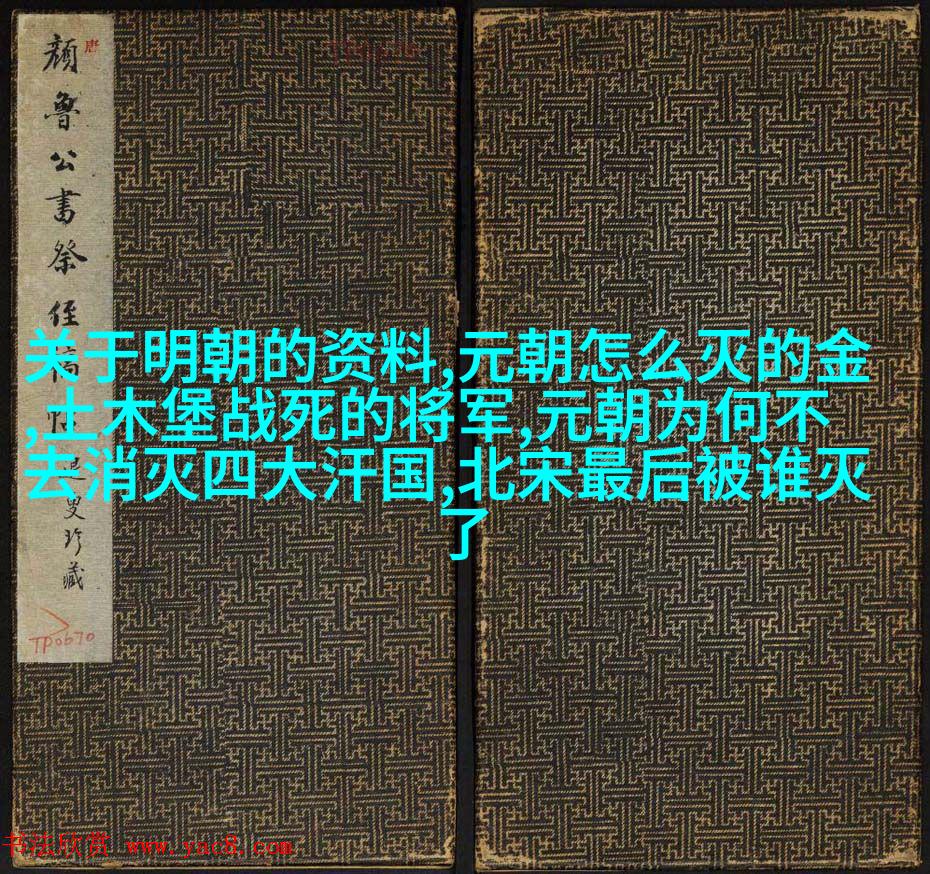 唐
颜鲁公书祭侄
退叟珍藏
TP0670
关于明朝的资料,元朝怎么灭的金
,土木堡战死的将军,元朝为何不
去消灭四大汗国,北宋最后被谁灭
了
书法欣赏 www.yac8.com